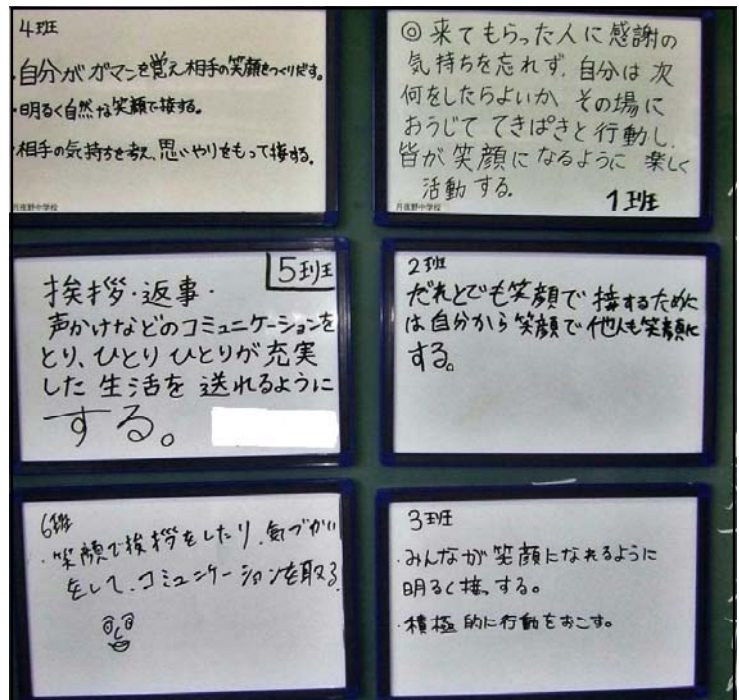 4班
・自分がガマンを覚え相手の笑顔をつくりだす。
・明るく自然な笑顔で接する。
・相手の気持ちを考え、思いやりをもって接する。
月夜野中学校
◎来てもらった人に感謝の
気持ちを忘れず、自分は次
何をしたらよいか、その場に
おうじててきぱきと行動し、
皆が笑顔になるように楽しく
活動する。
1班
月夜野中学校
5班
挨拶・返事・
声かけなどのコミュニケーションを
とり、ひとりひとりが充実
した生活を送れるように
する。
2班
だれとでも笑顔で接するために
は自分から笑顔で他人も笑顔に
する。
6班
・笑顔で挨拶をしたり、気づかい
をして、コミュニケーションを取る
3班
・みんなが笑顔になれるように
明るく接っする。
・積極的に行動をおこす。